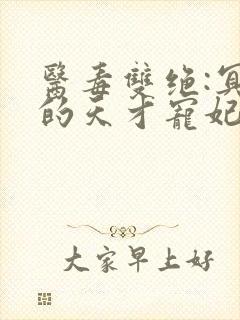 醫毒雙绝:冥
的天才寵妃
大家早上好